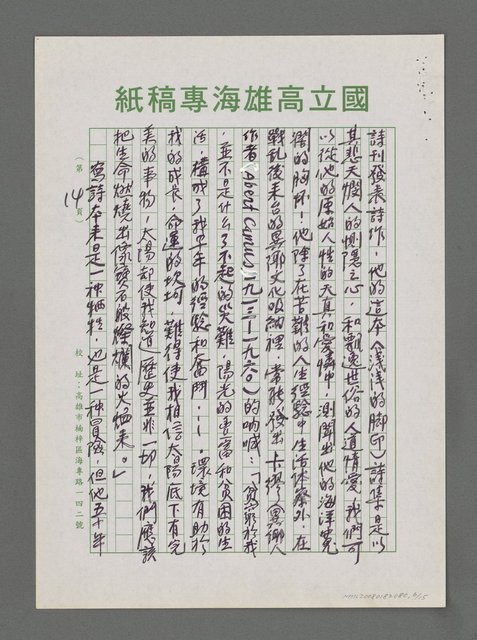 國立高雄海專稿紙
詩刊發表詩作，他的這本《漾漾的脚印》詩集是以
其悲天憫人的惻隱之心，和飄逸世俗的人道情愛，我們可
以從他的原始人性的天真和愛憐中，測聞出他的海洋寬
濶的胸怀！他除了在苦難的人生經驗中生活体察外，在
戰乱後半台的異鄉文化吸納裡，常能發出卡繆《異鄉人》
作者（Abert Camus）一九一三—一九六〇）的吶喊：「貧窮於我
，並不是什么了不起的災難，陽光的豐富和貧困的生
活，構成了我半年的經驗和奮鬥……環境有助於
我的成長，命運的坎坷，難得使我相信太陽底下有完
美的事物，太陽却使我知道歷史並非一切，我們應該
把生命燃燒出像寶石般燦爛的火燄來。」
寫詩本来是一种犧牲，也是一种冒險，但他五十年
（第14頁）
校址：高雄市楠梓區海專路一四二號
NMTL20080182080, 6/15